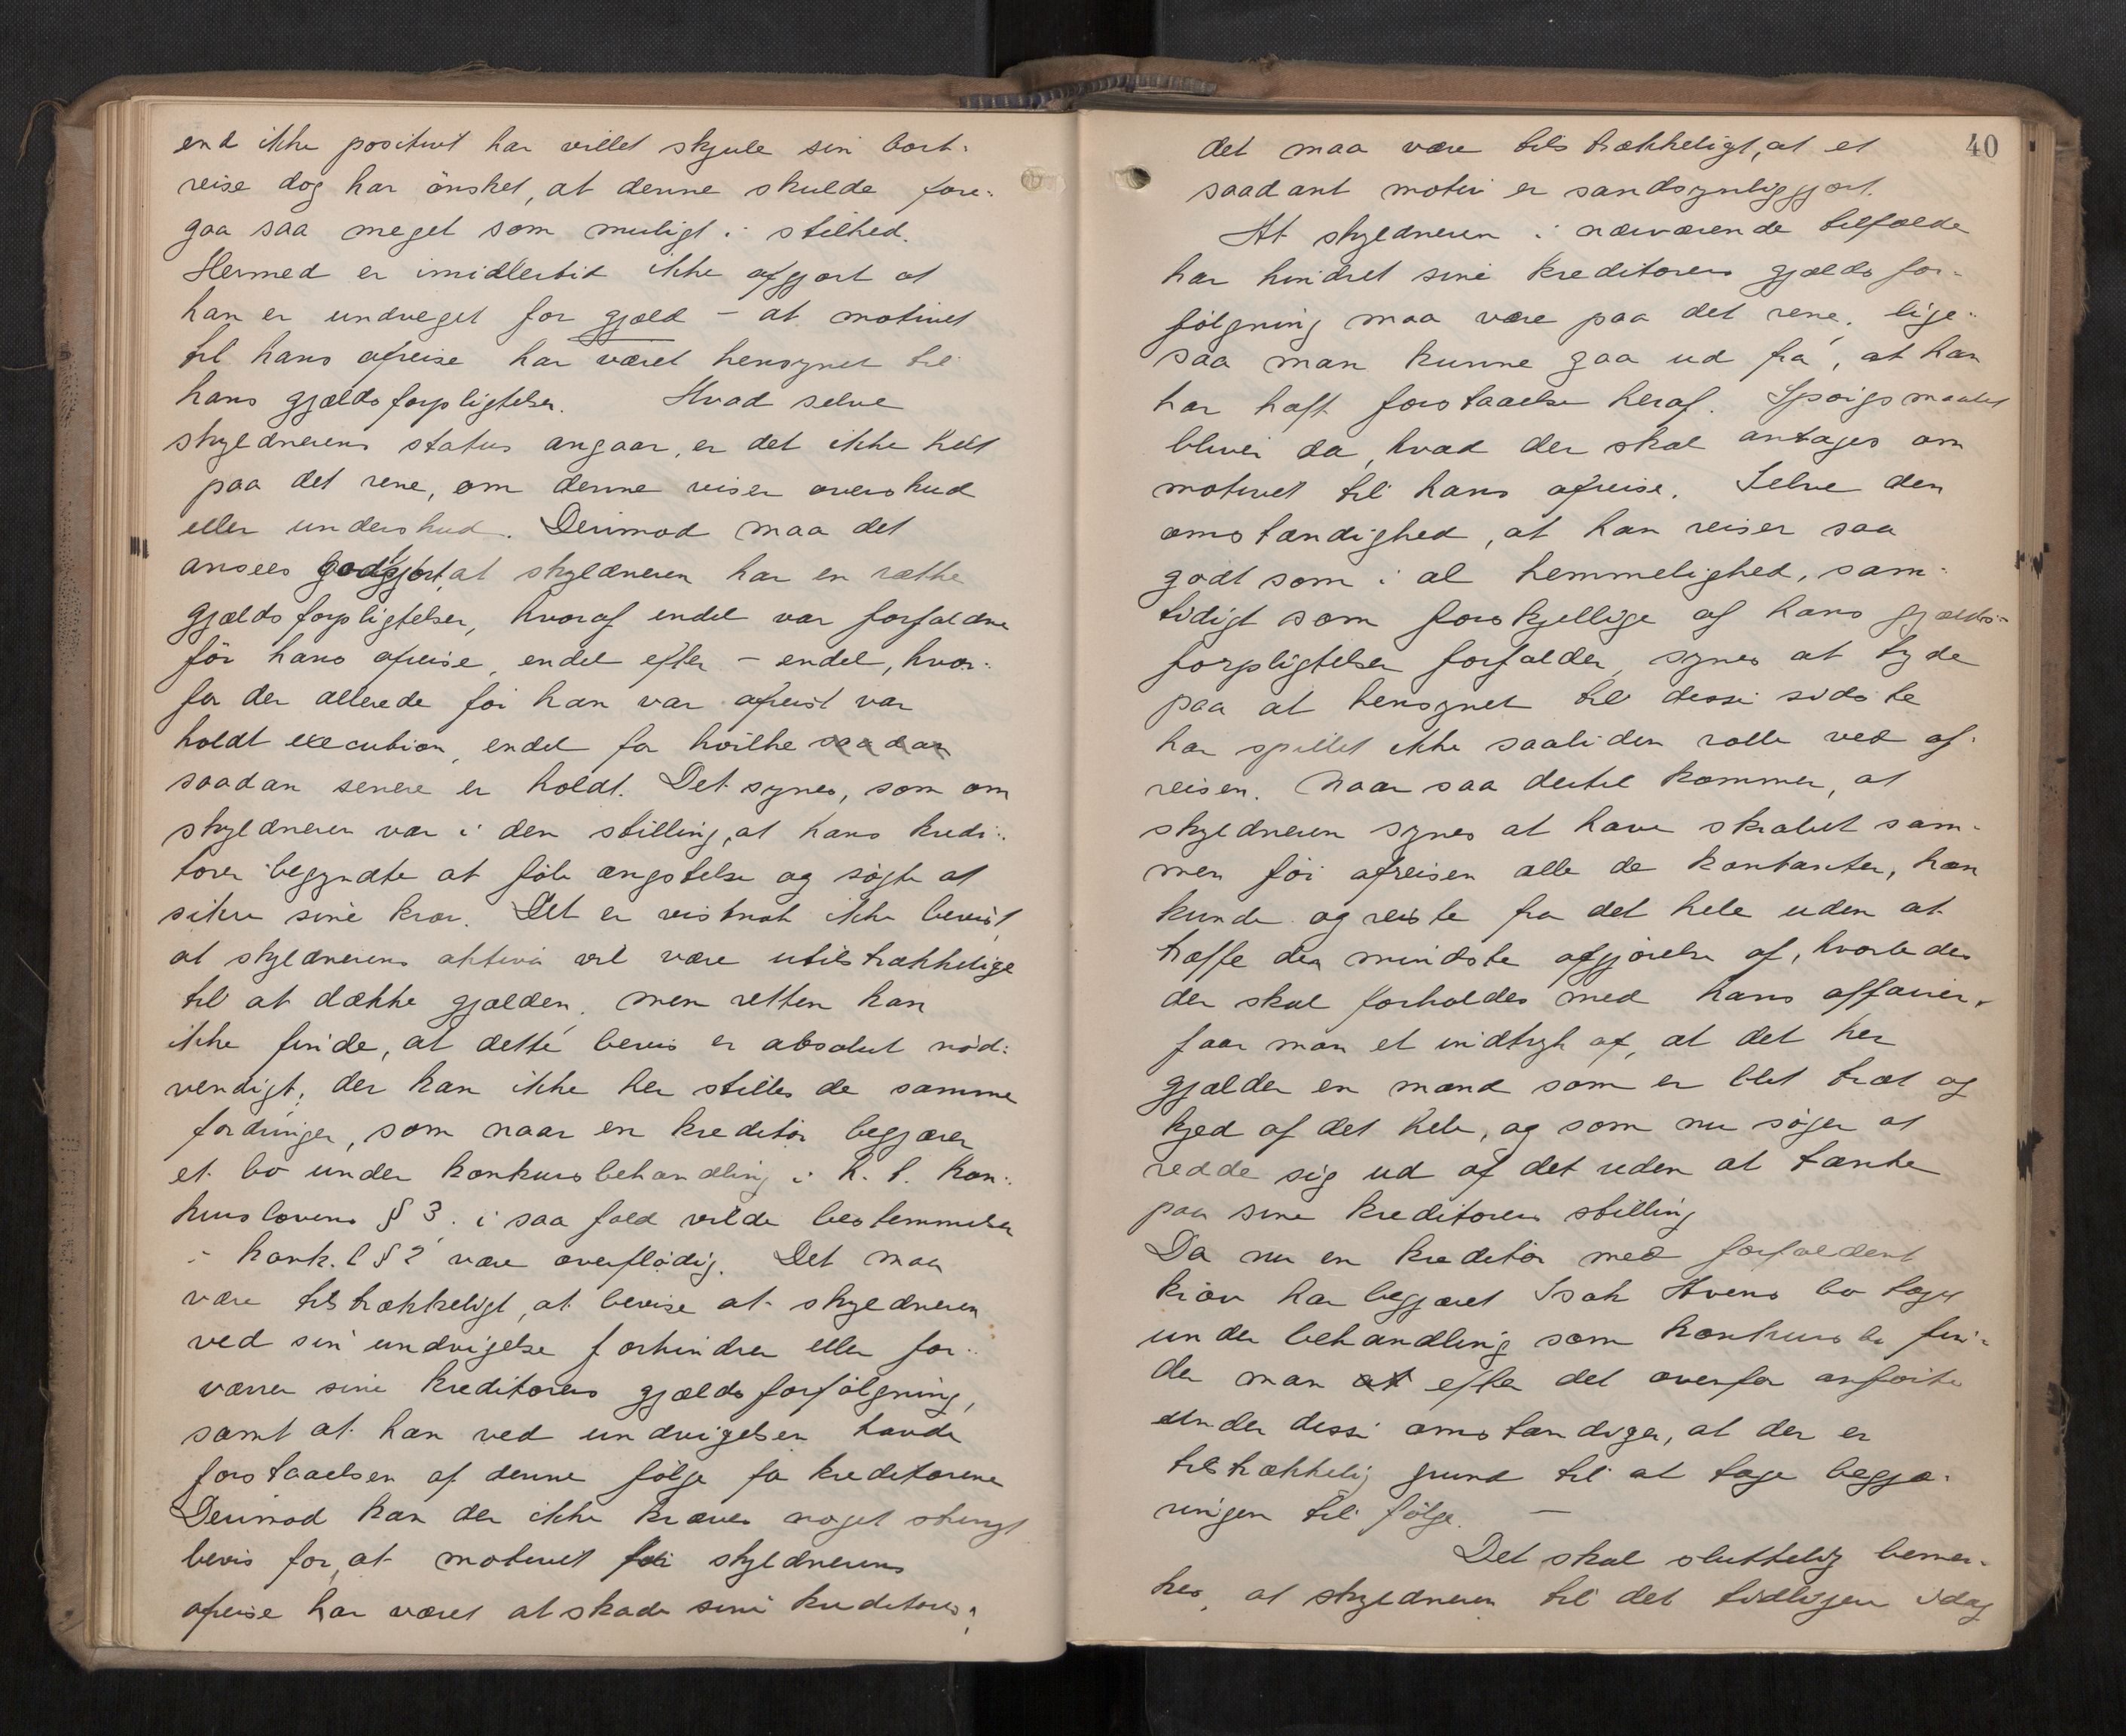 end ikke positivt har villet skjule sin bort-
reise dog har ønsket, at denne skulde fore-
gaa saa meget som muligt i stilhed.
Hermed er imidlertid ikke afgjort at
han er undveget for gjæld - at motivet
til hans afreise har været hensynet til
hans gjældsforpligtelser. Hvad selve
skyldnerens status angaar, er det ikke helt
paa det rene, om denne viser overskud
eller underskud. Derimod maa det
ansees godtgjort, at skyldneren har en række
gjældsforpligtelser, hvoraf endel var forfaldne
før hans afreise, endel efter - endel, hvor-
for der allerede før han var afreist var
holdt execution, endel for hvilke saadan
saadan senere er holdt. Det synes, som om
skyldneren var i den stilling, at hans kredi-
torer begyndte at føle ængstelse og søgte at
sikre sine krav. Det er vistnok ikke bevist,
at skyldnerens aktiva vil være utilstrækkelige
til at dække gjælden, men retten kan
ikke finde, at dette bevis er absolut nød-
vendigt; der kan ikke her stilles de samme
fordringer, som naar en kreditor begjærer
et bo under konkursbehandling i h. t. kon-
kurslovens § 3. i saa fald vilde bestemmelsen
i konk. l § 2 være overflødig. Det maa
være tilstrækkeligt, at bevise at skyldneren
ved sin undvigelse forhindrer eller for-
værrer sine kreditorers gjældsforfølgning,
samt at han ved undvigelsen havde
forstaaelsen af denne følge for kreditorerne
Derimod kan der ikke kræves noget strengt
bevis for, at motivet for skyldnerens
afreise har været at skade sine kreditorer;
40
det maa være tilstrækkeligt, at et
saadant motiv er sandsynliggjort.
At skyldneren i nærværende tilfælde
har hindret sine kreditorers gjældsfor-
følgning maa være paa det rene, lige-
saa man kunne gaa ud fra, at han
har haft forstaaelse heraf. Spørgsmaalet
bliver da, hvad der skal antages om
motivet til hans afreise. Selve den
omstændighed, at han reiser saa
godt som i al hemmelighed, sam-
tidigt som forskjellige af hans gjælds-
forpligtelser forfalder, synes at tyde
paa at hensynet til disse sidste
har spillet ikke saaliden rolle ved af-
reisen. Naar saa dertil kommer, at
skyldneren synes at have skrabet sam-
men før afreisen alle de kontanter, han
kunde og reiste fra det hele uden at
træffe den mindste afgjørelse af, hvorledes
der skal forholdes med hans affairer,
faar man et indtryk af, at det her
gjælder en mand som er blet træt og
kjed af det hele, og som nu søger at
redde sig ud af det uden at tænke
paa sine kreditorers stilling
Da nu en kreditor med forfaldent
krav har begjæret Isak Hvens bo taget
under behandling som konkursbo fin-
der man at efter det ovenfor anførte
under disse omstændiger, at der er
tilstrækkelig grund til at tage begjæ-
ringen til følge. —
Det skal sluttelig bemer-
kes, at skyldneren til det tidligere idag